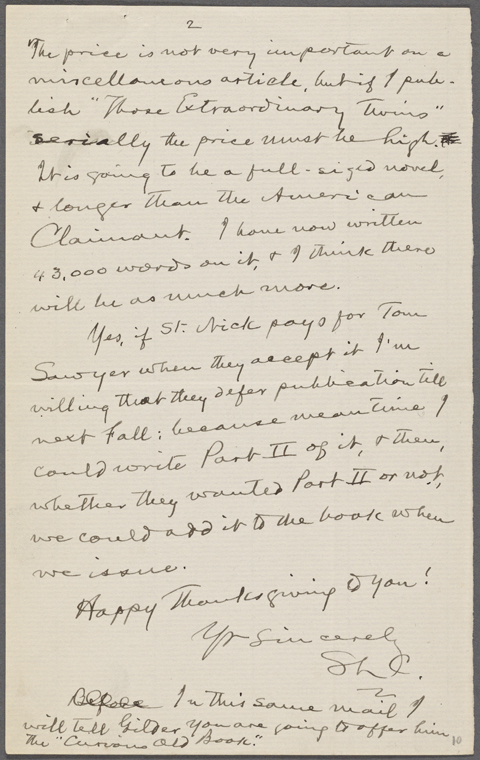 2
The price is not very important on a
miscellaneous article, but if I pub-
lish "Those Extraordinary Twins"
serially the price must be high.
It is going to be a full-sized novel,
& longer than the American
Claimant. I have now written
43,000 words on it, & I think there
will be as much more.
Yes, if St. Nick pays for Tom
Sawyer when they accept it I'm
willing that they defer publication till
next Fall; because meantime I
could write Part II of it, & then,
whether they wanted Part II or not,
we could add it to the book when
we issue.
Happy Thanksgiving to you!
Yr sincerely
SLC.
Before In this same mail I
will tell Gilder you are going to offer him
the "Curious Old Book."
10